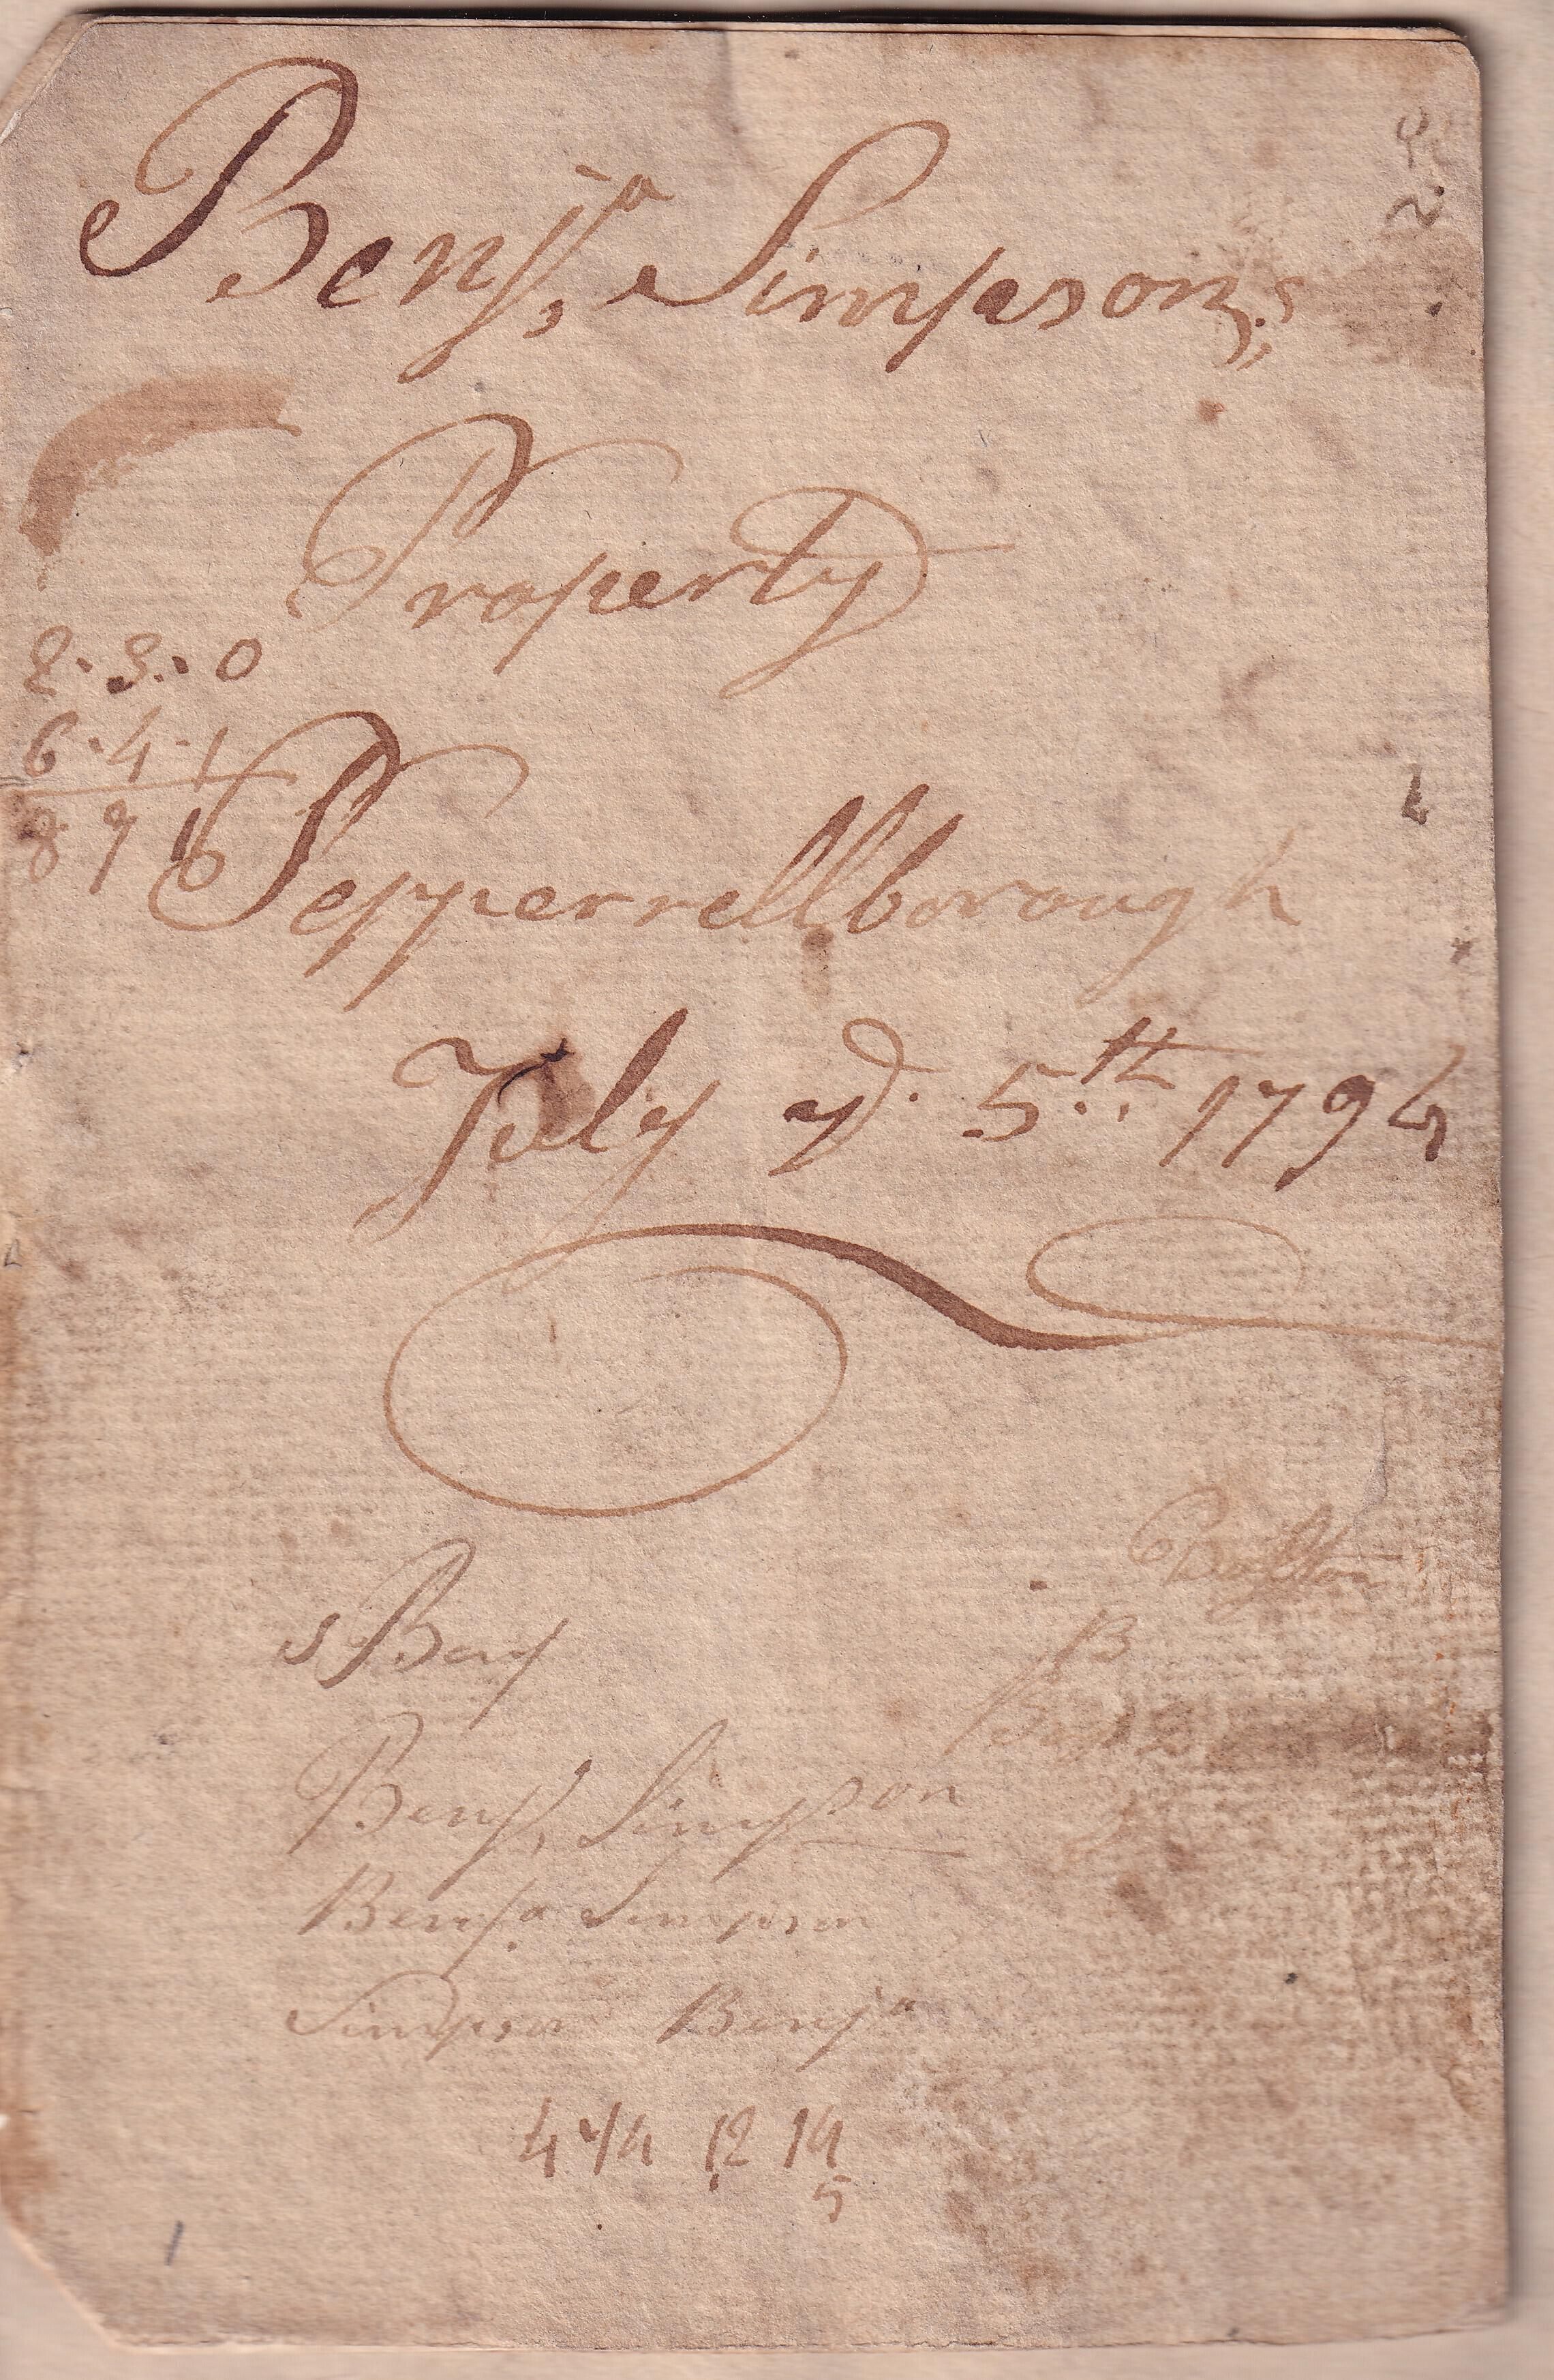 Benj.ª Simpson,s
Property
2 · 3 · 0
6 · 4 · 1
8 7 1
Pepperrellborough
July yᵉ. 5th 1794
s Benj
B
Benj, Simpson
Benjª Simpson
Simpson Benjª
4 4/4 12 14
5